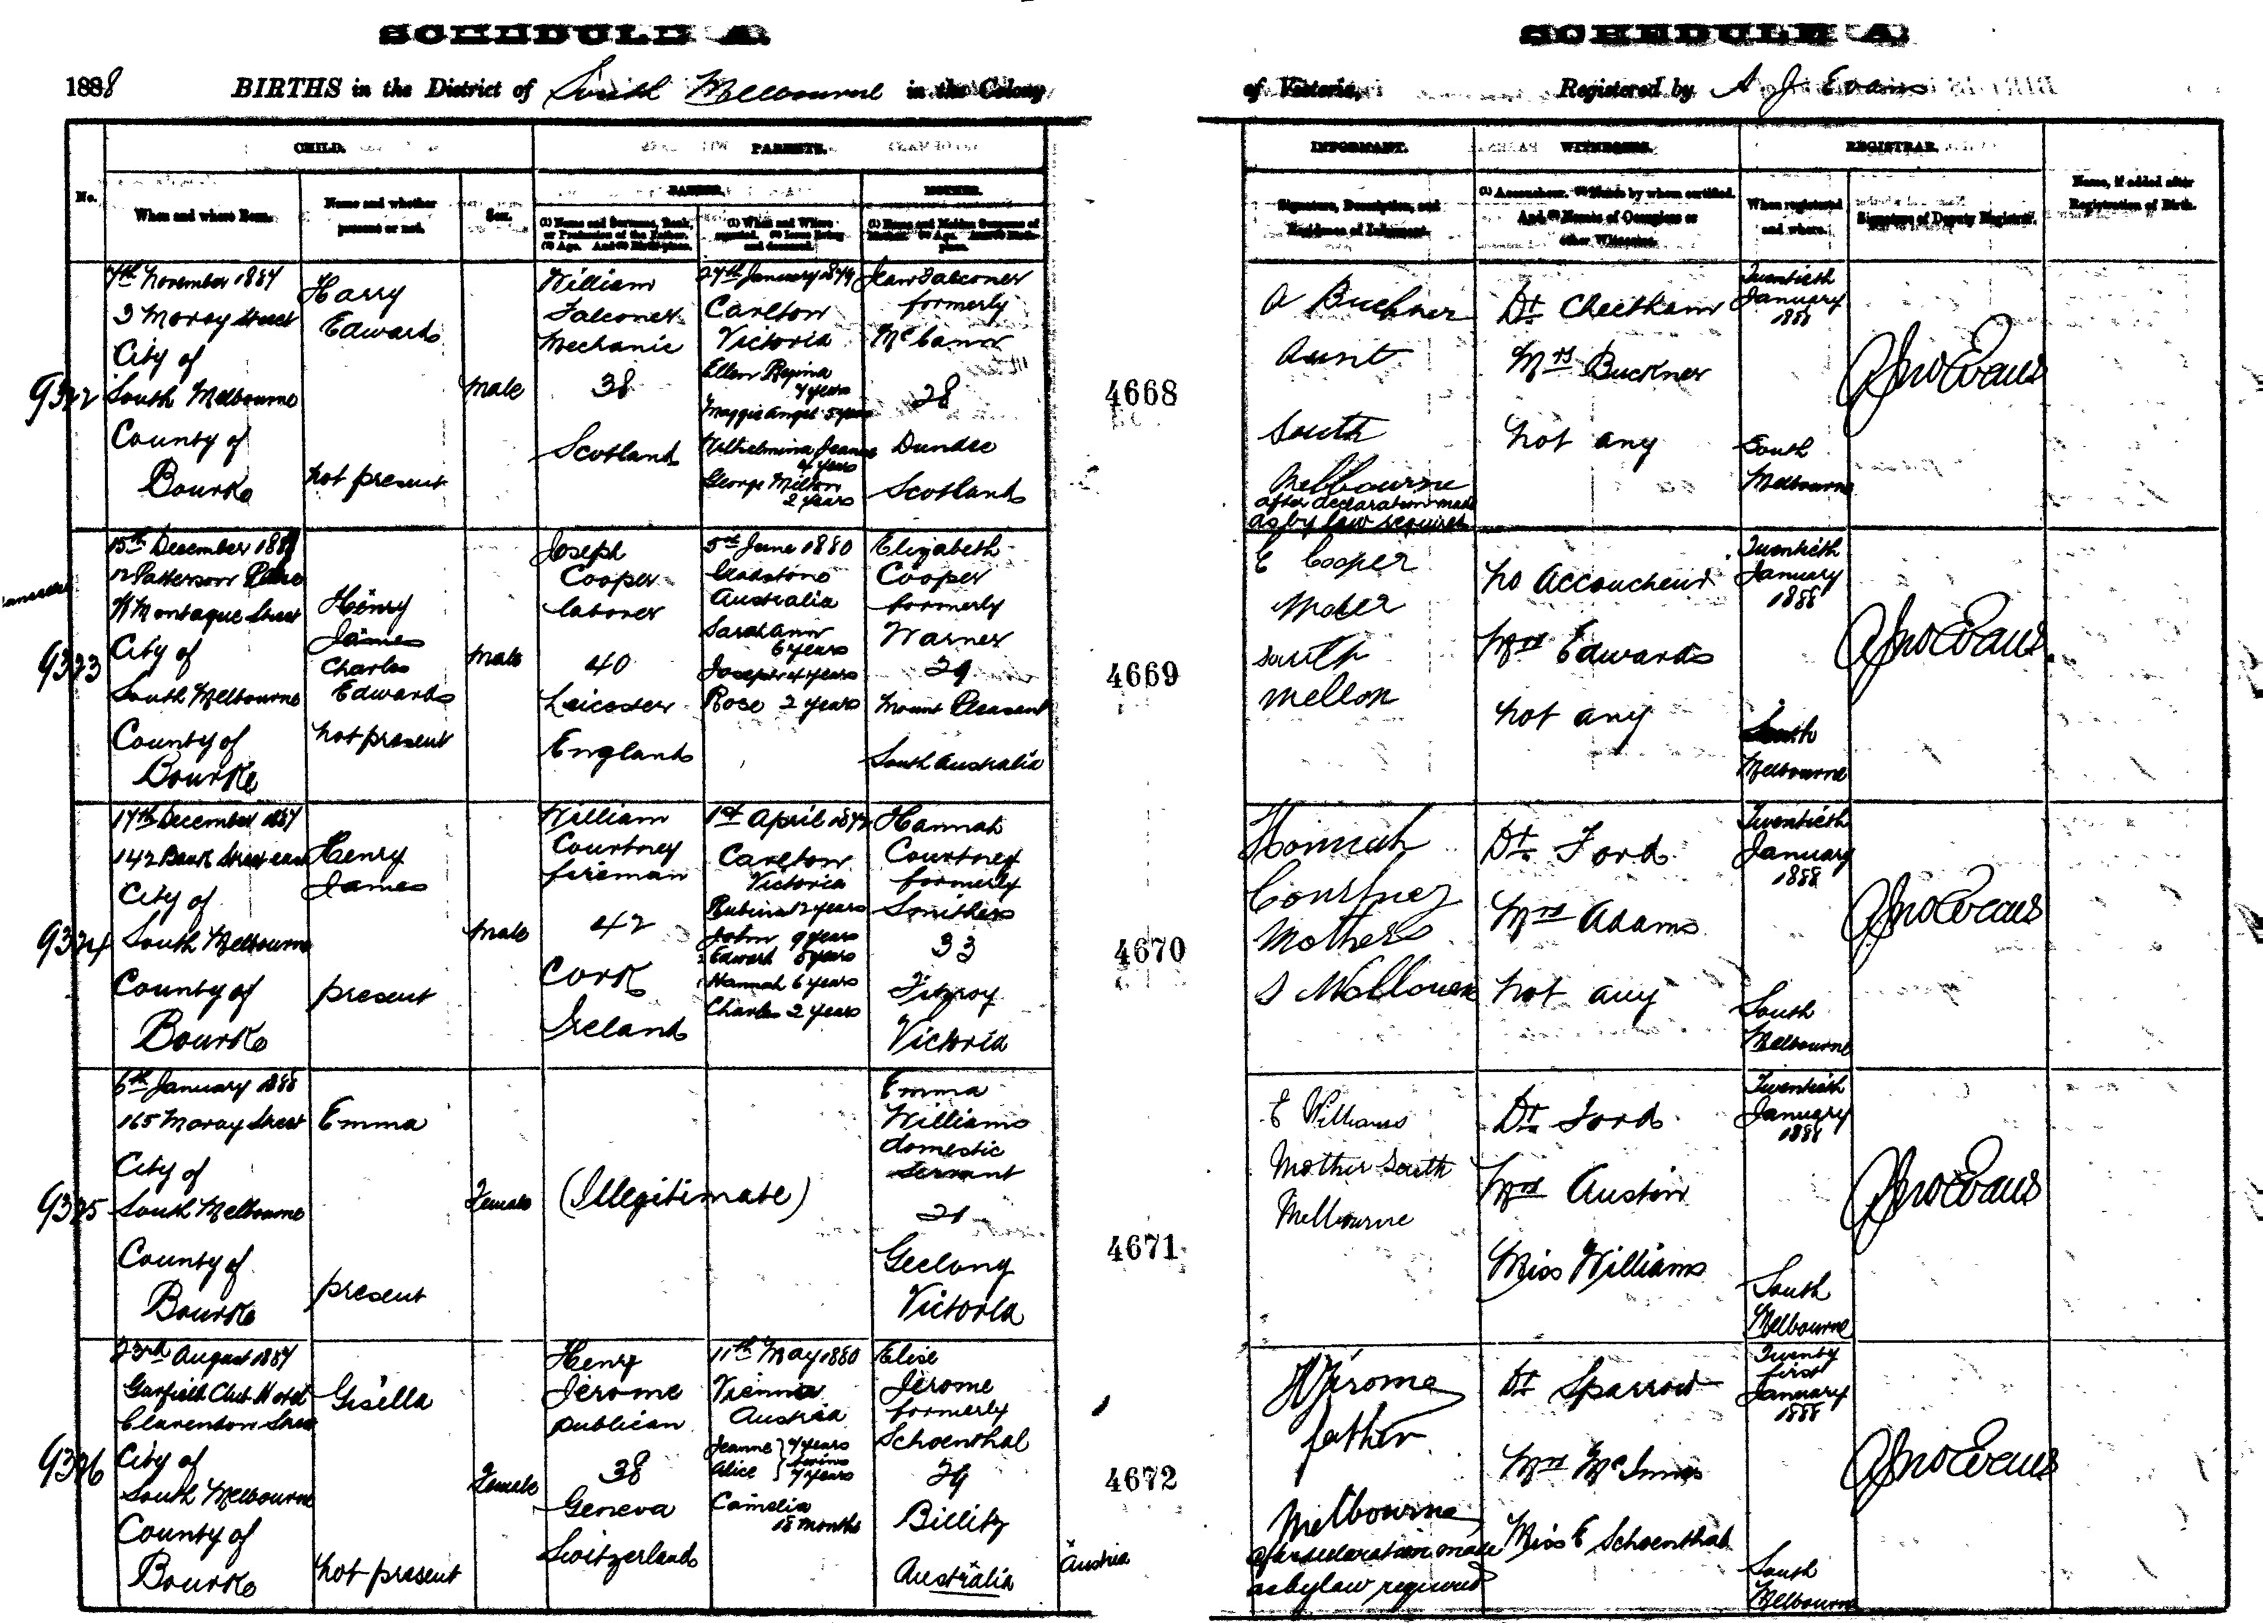 SCHEDULE A.
1888 BIRTHS in the District of South Melbourne in the Colony
No.
CHILD.
PARENTS.
When and where Born.
Name and whether
present or not.
Sex.
FATHER.
MOTHER.
(1) Name and Surname, Rank,
or Profession of the Father.
(2) Age. And (3) Birth-place.
(1) When and Where
married. (2) Issue living
and deceased.
(1) Name and Maiden Surname of
Mother. (2) Age. And (3) Birth-
place.
9322
7th November 1887
3 Moray Street
City of
South Melbourne
County of
Bourke
Harry
Edwards
not present
Male
William
Falconer
Mechanic
38
Scotland
27th January 1879
Carlton
Victoria
Ellen Regina
7 years
Maggie Angel 5 years
Wilhelmina Jeanne
4 years
George Milton
2 years
Jean Falconer
formerly
28
Dundee
Scotland
4668
9323
15th December 1887
12 Patterson Place
Montague Street
City of
South Melbourne
County of
Bourke
Henry
James
Charles
Edwards
not present
Male
Joseph
Cooper
laborer
40
Leicester
England
5th June 1880
Gladstone
Australia
Sarah Ann
6 years
Joseph 4 years
Rose 2 years
Elizabeth
Cooper
formerly
Warner
29
Mount Pleasant
South Australia
4669
9324
17th December 1887
142 Bank Street east
City of
South Melbourne
County of
Bourke
Henry
James
present
Male
William
Courtney
fireman
42
Cork
Ireland
1st April 1874
Carlton
Victoria
Rubina 12 years
John 9 years
Edward 8 years
Hannah 6 years
Charles 2 years
Hannah
Courtney
formerly
Smithers
33
Fitzroy
Victoria
4670
9325
6th January 1888
165 Moray Street
City of
South Melbourne
County of
Bourke
Emma
present
Female
(Illegitimate)
Emma
Williams
domestic
servant
21
Geelong
Victoria
4671
9326
23rd August 1887
Garfield Club Hotel
Clarendon Street
City of
South Melbourne
County of
Bourke
Gisella
not present
Female
Henry
Jerome
publican
38
Geneva
Switzerland
11th May 1880
Vienna
Austria
Jeanne } 7 years
twins
Alice } 7 years
Camelia
18 months
Elise
Jerome
formerly
Schoenthal
29
Billitz
Australia
Austria
4672
SCHEDULE A.
of Victoria, Registered by A J Evans
INFORMANT.
WITNESSES.
REGISTRAR.
Signature, Description, and
Residence of Informant.
(1) Accoucheur. (2) Nurse by whom certified.
And (3) Names of Occupiers or
other Witnesses.
When registered
and where.
Signature of Deputy Registrar.
Name, if added after
Registration of Birth.
A Buckner
Aunt
South
Melbourne
after declaration made
as by law required
Dr Cheetham
Mrs Buckner
not any
Twentieth
January
1888
South
Melbourne
Jno Evans
E Cooper
South
No Accoucheur
Mrs Edwards
not any
Twentieth
January
1888
South
Melbourne
Jno Evans
Hannah
Courtney
Mother
Dr Ford
Mrs Adams
not any
Twentieth
January
1888
South
Melbourne
Jno Evans
E Williams
Mother South
Melbourne
Dr Ford
Mrs Austin
Miss Williams
Twentieth
January
1888
South
Melbourne
Jno Evans
H Jerome
father
Melbourne
after declaration made
as by law required
Dr Sparrow
Mrs McInnes
Miss E Schoenthal
Twenty
first
January
1888
South
Melbourne
Jno Evans